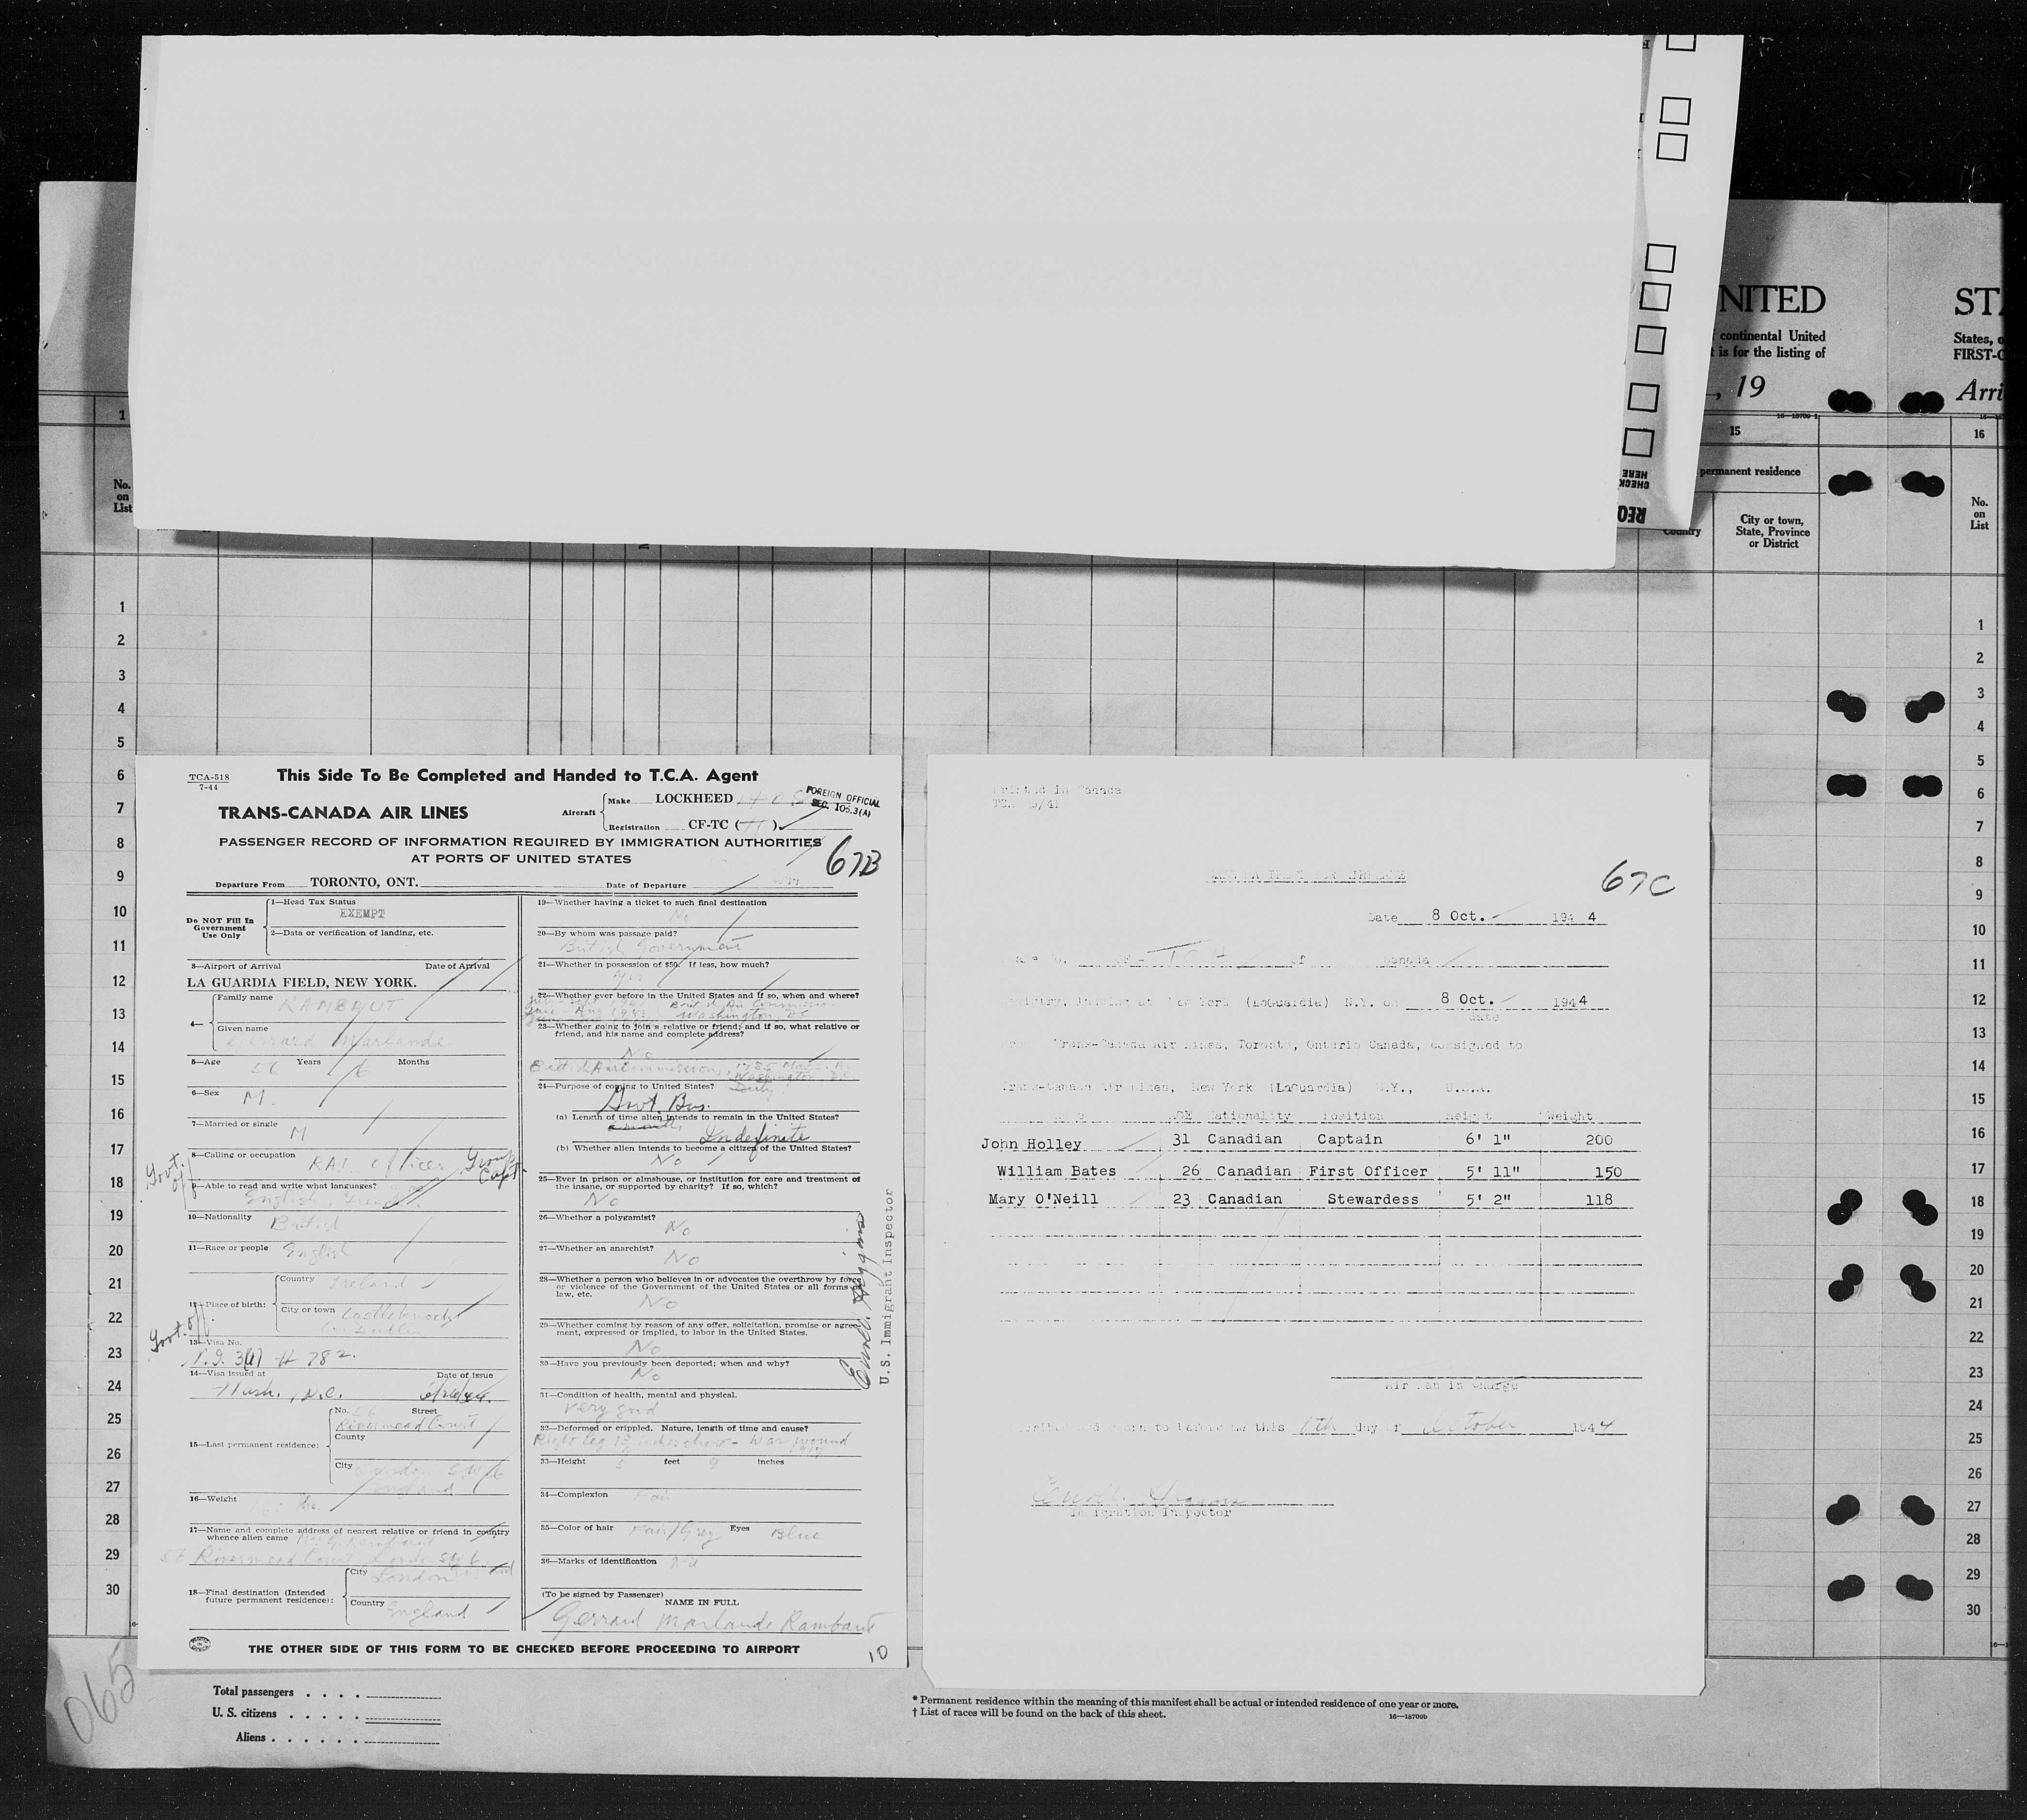 NITED
ST
continental United
t is for the listing of
States, o
FIRST-C
, 19
Arri
16—18709-1
1
15
16
permanent residence
No.
on
List
CHECK
HERE
Country
City or town,
State, Province
or District
No.
on
List
1
2
3
4
5
6
7
8
9
10
11
12
13
14
15
16
17
18
19
20
21
22
23
24
25
26
27
28
29
30
TCA-518
7-44
This Side To Be Completed and Handed to T.C.A. Agent
TRANS-CANADA AIR LINES
Aircraft
Make LOCKHEED 14-08
Registration CF-TC ( H )
FOREIGN OFFICIAL
SEC. 105.3(A)
PASSENGER RECORD OF INFORMATION REQUIRED BY IMMIGRATION AUTHORITIES
AT PORTS OF UNITED STATES
67B
Departure From TORONTO, ONT.
Date of Departure
Do NOT Fill In
Government
Use Only
1—Head Tax Status
EXEMPT
2—Data or verification of landing, etc.
3—Airport of Arrival Date of Arrival
LA GUARDIA FIELD, NEW YORK.
4—
Family name RAMBAUT
Given name
Gerrard Marlande
5—Age 56 Years 6 Months
6—Sex M.
7—Married or single M
8—Calling or occupation RAF Officer Group Capt.
Govt. of
9—Able to read and write what languages?
English, French
10—Nationality British
11—Race or people English
12—Place of birth:
Country Ireland
City or town Castleknock
Co. Dublin
Govt. off.
13—Visa No.
# 782.
14—Visa issued at Date of issue
Wash., D.C.
15—Last permanent residence:
No. 56 Street
Rivermead Court
County
City London S.W.6
England
16—Weight lbs.
17—Name and complete address of nearest relative or friend in country
whence alien came Mrs G. Rambaut
56 Rivermead Court London SW6, England
18—Final destination (Intended
future permanent residence):
City London
Country England
19—Whether having a ticket to such final destination
No
20—By whom was passage paid?
British Government
21—Whether in possession of $50. If less, how much?
Yes
22—Whether ever before in the United States and if so, when and where?
British Air Commission
Washington, DC
23—Whether going to join a relative or friend; and if so, what relative or
friend, and his name and complete address?
No
British Air Commission, 1785 Mass. Av
Washington, DC
24—Purpose of coming to United States? Duty
Govt. Bus.
(a) Length of time alien intends to remain in the United States?
Indefinite
(b) Whether alien intends to become a citizen of the United States?
No
25—Ever in prison or almshouse, or institution for care and treatment of
the insane, or supported by charity? If so, which?
No
26—Whether a polygamist?
No
27—Whether an anarchist?
No
28—Whether a person who believes in or advocates the overthrow by force
or violence of the Government of the United States or all forms of
law, etc.
No
29—Whether coming by reason of any offer, solicitation, promise or agree-
ment, expressed or implied, to labor in the United States.
No
30—Have you previously been deported; when and why?
No
31—Condition of health, mental and physical.
very good
32—Deformed or crippled. Nature, length of time and cause?
Right leg inches short - War wound
1917
33—Height 5 feet 9 inches
34—Complexion Fair
35—Color of hair Fair/Grey Eyes Blue
36—Marks of identification Nil
(To be signed by Passenger) NAME IN FULL
Gerrard Marlande Rambaut
U.S. Immigrant Inspector
THE OTHER SIDE OF THIS FORM TO BE CHECKED BEFORE PROCEEDING TO AIRPORT
10
Printed in Canada
67C
Date 8 Oct. 1944
CF-TCH of Canada
landing at New York (LaGuardia) N.Y. on 8 Oct. 1944
date
Trans-Canada Air Lines, Toronto, Ontario Canada, consigned to
Trans-Canada Air Lines, New York (LaGuardia) N.Y., U.S.A.
Name AGE Nationality Position Height Weight
John Holley 31 Canadian Captain 6' 1" 200
William Bates 26 Canadian First Officer 5' 11" 150
Mary O'Neill 23 Canadian Stewardess 5' 2" 118
Air Man in Charge
Subscribed and sworn to before me this 8th day of October 1944
Immigration Inspector
065
Total passengers
U. S. citizens
Aliens
* Permanent residence within the meaning of this manifest shall be actual or intended residence of one year or more.
† List of races will be found on the back of this sheet.
16—18709b
1
2
3
4
5
6
7
8
9
10
11
12
13
14
15
16
17
18
19
20
21
22
23
24
25
26
27
28
29
30